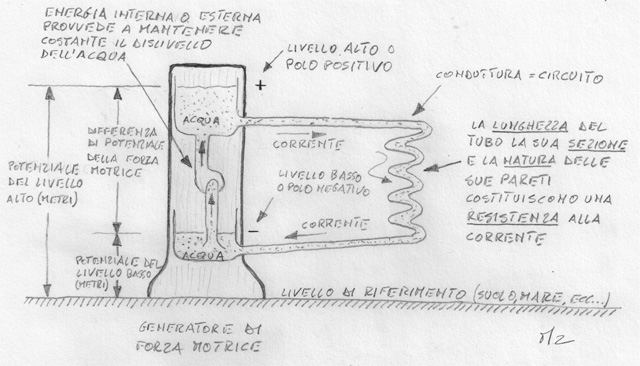 ENERGIA INTERNA O ESTERNA
PROVVEDE A MANTENERE
COSTANTE IL DISLIVELLO
DELL'ACQUA
LIVELLO ALTO O
POLO POSITIVO
+
CONDUTTURA = CIRCUITO
ACQUA
CORRENTE
DIFFERENZA
DI POTENZIALE
DELLA FORZA
MOTRICE
POTENZIALE
DEL LIVELLO
ALTO (METRI)
LA LUNGHEZZA DEL
TUBO LA SUA SEZIONE
E LA NATURA DELLE
SUE PARETI
COSTITUISCONO UNA
RESISTENZA ALLA
CORRENTE
LIVELLO BASSO
O POLO NEGATIVO
-
CORRENTE
ACQUA
POTENZIALE DEL
LIVELLO BASSO
(METRI)
LIVELLO DI RIFERIMENTO (SUOLO, MARE, ECC...)
GENERATORE DI
FORZA MOTRICE